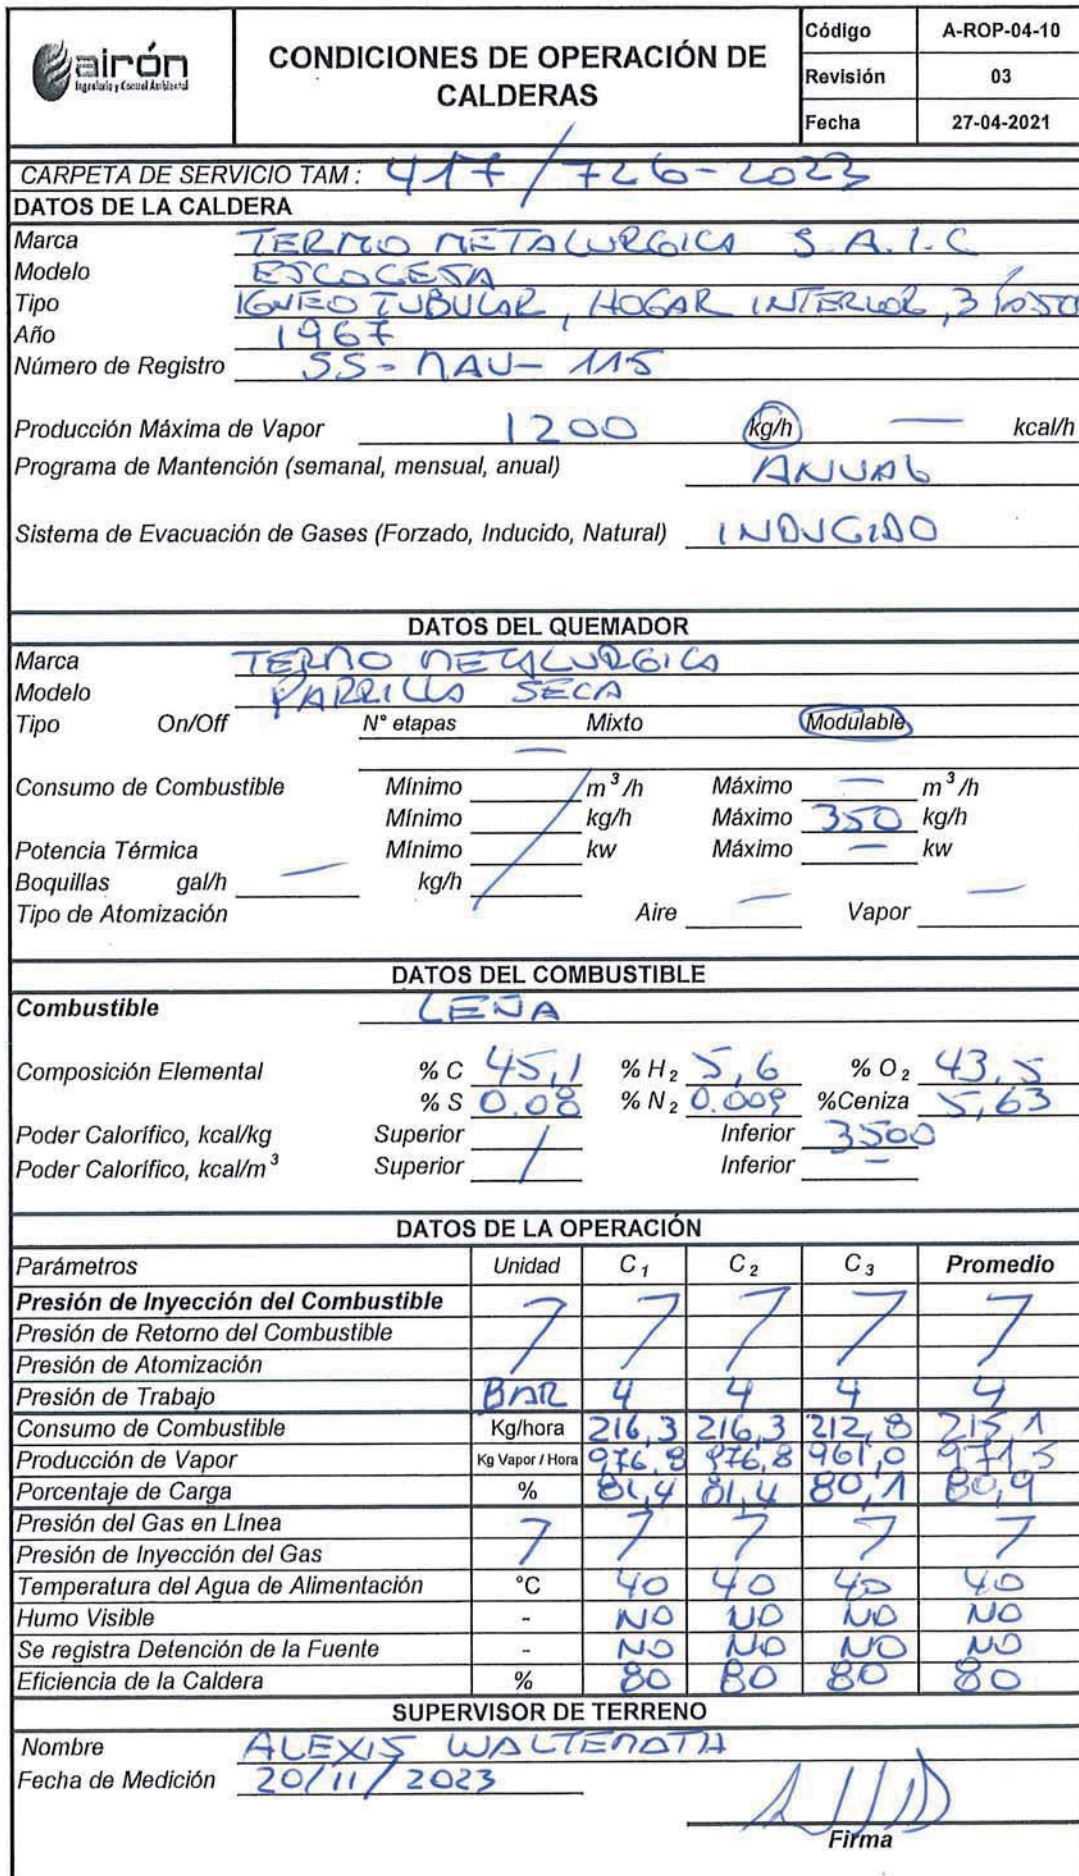 airón
Ingeniería y Control Ambiental
CONDICIONES DE OPERACIÓN DE CALDERAS
Código A-ROP-04-10
Revisión 03
Fecha 27-04-2021
CARPETA DE SERVICIO TAM : 417/726-2023
DATOS DE LA CALDERA
Marca TERMO METALURGICA S.A.I.C
Modelo ESCOCESA
Tipo IGNEO TUBULAR, HOGAR INTERIOR, 3 PASO
Año 1967
Número de Registro SS-NAU-115
Producción Máxima de Vapor 1200 kg/h — kcal/h
Programa de Mantención (semanal, mensual, anual) ANUAL
Sistema de Evacuación de Gases (Forzado, Inducido, Natural) INDUCIDO
DATOS DEL QUEMADOR
Marca TERMO METALURGICA
Modelo PARRILLA SECA
Tipo On/Off N° etapas Mixto Modulable
—
Consumo de Combustible Mínimo / m³/h Máximo — m³/h
Mínimo kg/h Máximo 350 kg/h
Potencia Térmica Mínimo kw Máximo — kw
Boquillas gal/h — kg/h
Tipo de Atomización Aire — Vapor —
DATOS DEL COMBUSTIBLE
Combustible LEÑA
Composición Elemental % C 45,1 % H₂ 5,6 % O₂ 43,5
% S 0.08 % N₂ 0.009 %Ceniza 5,63
Poder Calorífico, kcal/kg Superior / Inferior 3500
Poder Calorífico, kcal/m³ Superior Inferior —
DATOS DE LA OPERACIÓN
Parámetros Unidad C₁ C₂ C₃ Promedio
Presión de Inyección del Combustible
Presión de Retorno del Combustible
Presión de Atomización
Presión de Trabajo BAR 4 4 4 4
Consumo de Combustible Kg/hora 216,3 216,3 212,8 215,1
Producción de Vapor Kg Vapor / Hora 976,8 976,8 961,0 971,5
Porcentaje de Carga % 81,4 81,4 80,1 80,9
Presión del Gas en Línea
Presión de Inyección del Gas
Temperatura del Agua de Alimentación °C 40 40 40 40
Humo Visible - NO NO NO NO
Se registra Detención de la Fuente - NO NO NO NO
Eficiencia de la Caldera % 80 80 80 80
SUPERVISOR DE TERRENO
Nombre ALEXIS WALTEMATH
Fecha de Medición 20/11/2023
Firma